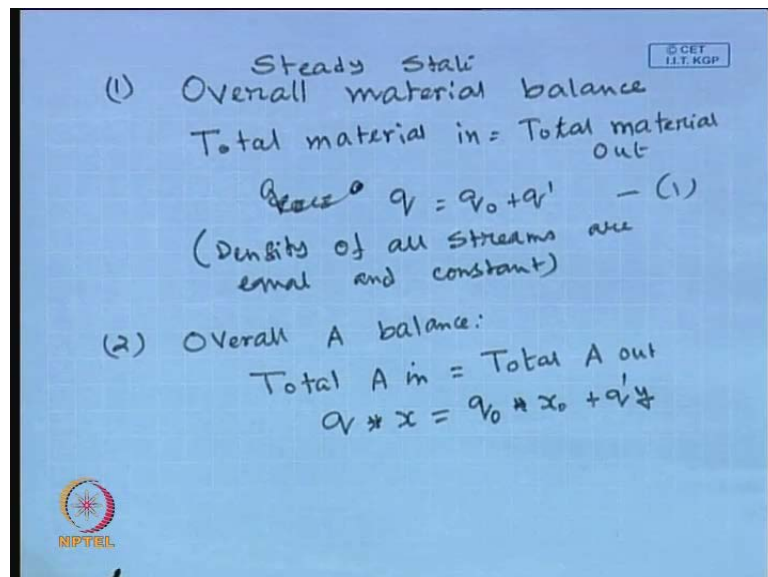 Steady State
© CET
I.I.T. KGP
(1) Overall material balance
Total material in = Total material
out
q = q₀ + q' — (1)
(Density of all streams are
equal and constant)
(2) Overall A balance:
Total A in = Total A out
q * x = q₀ * x₀ + q'y
NPTEL